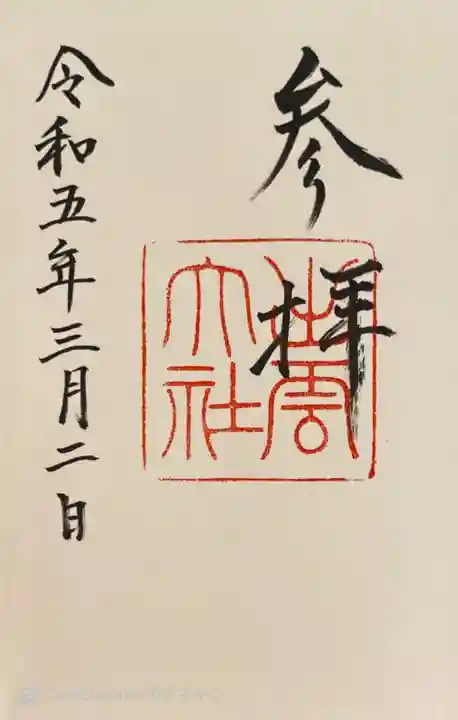 参拝
出雲
大社
令和五年三月二日